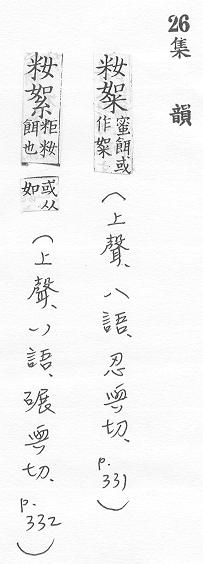 26 集 韻
籹 蜜餌或作 (上聲、八語、忍與切、p.331)
籹絮 粔籹餌也 或从如 (上聲、八語、碾與切、p.332)